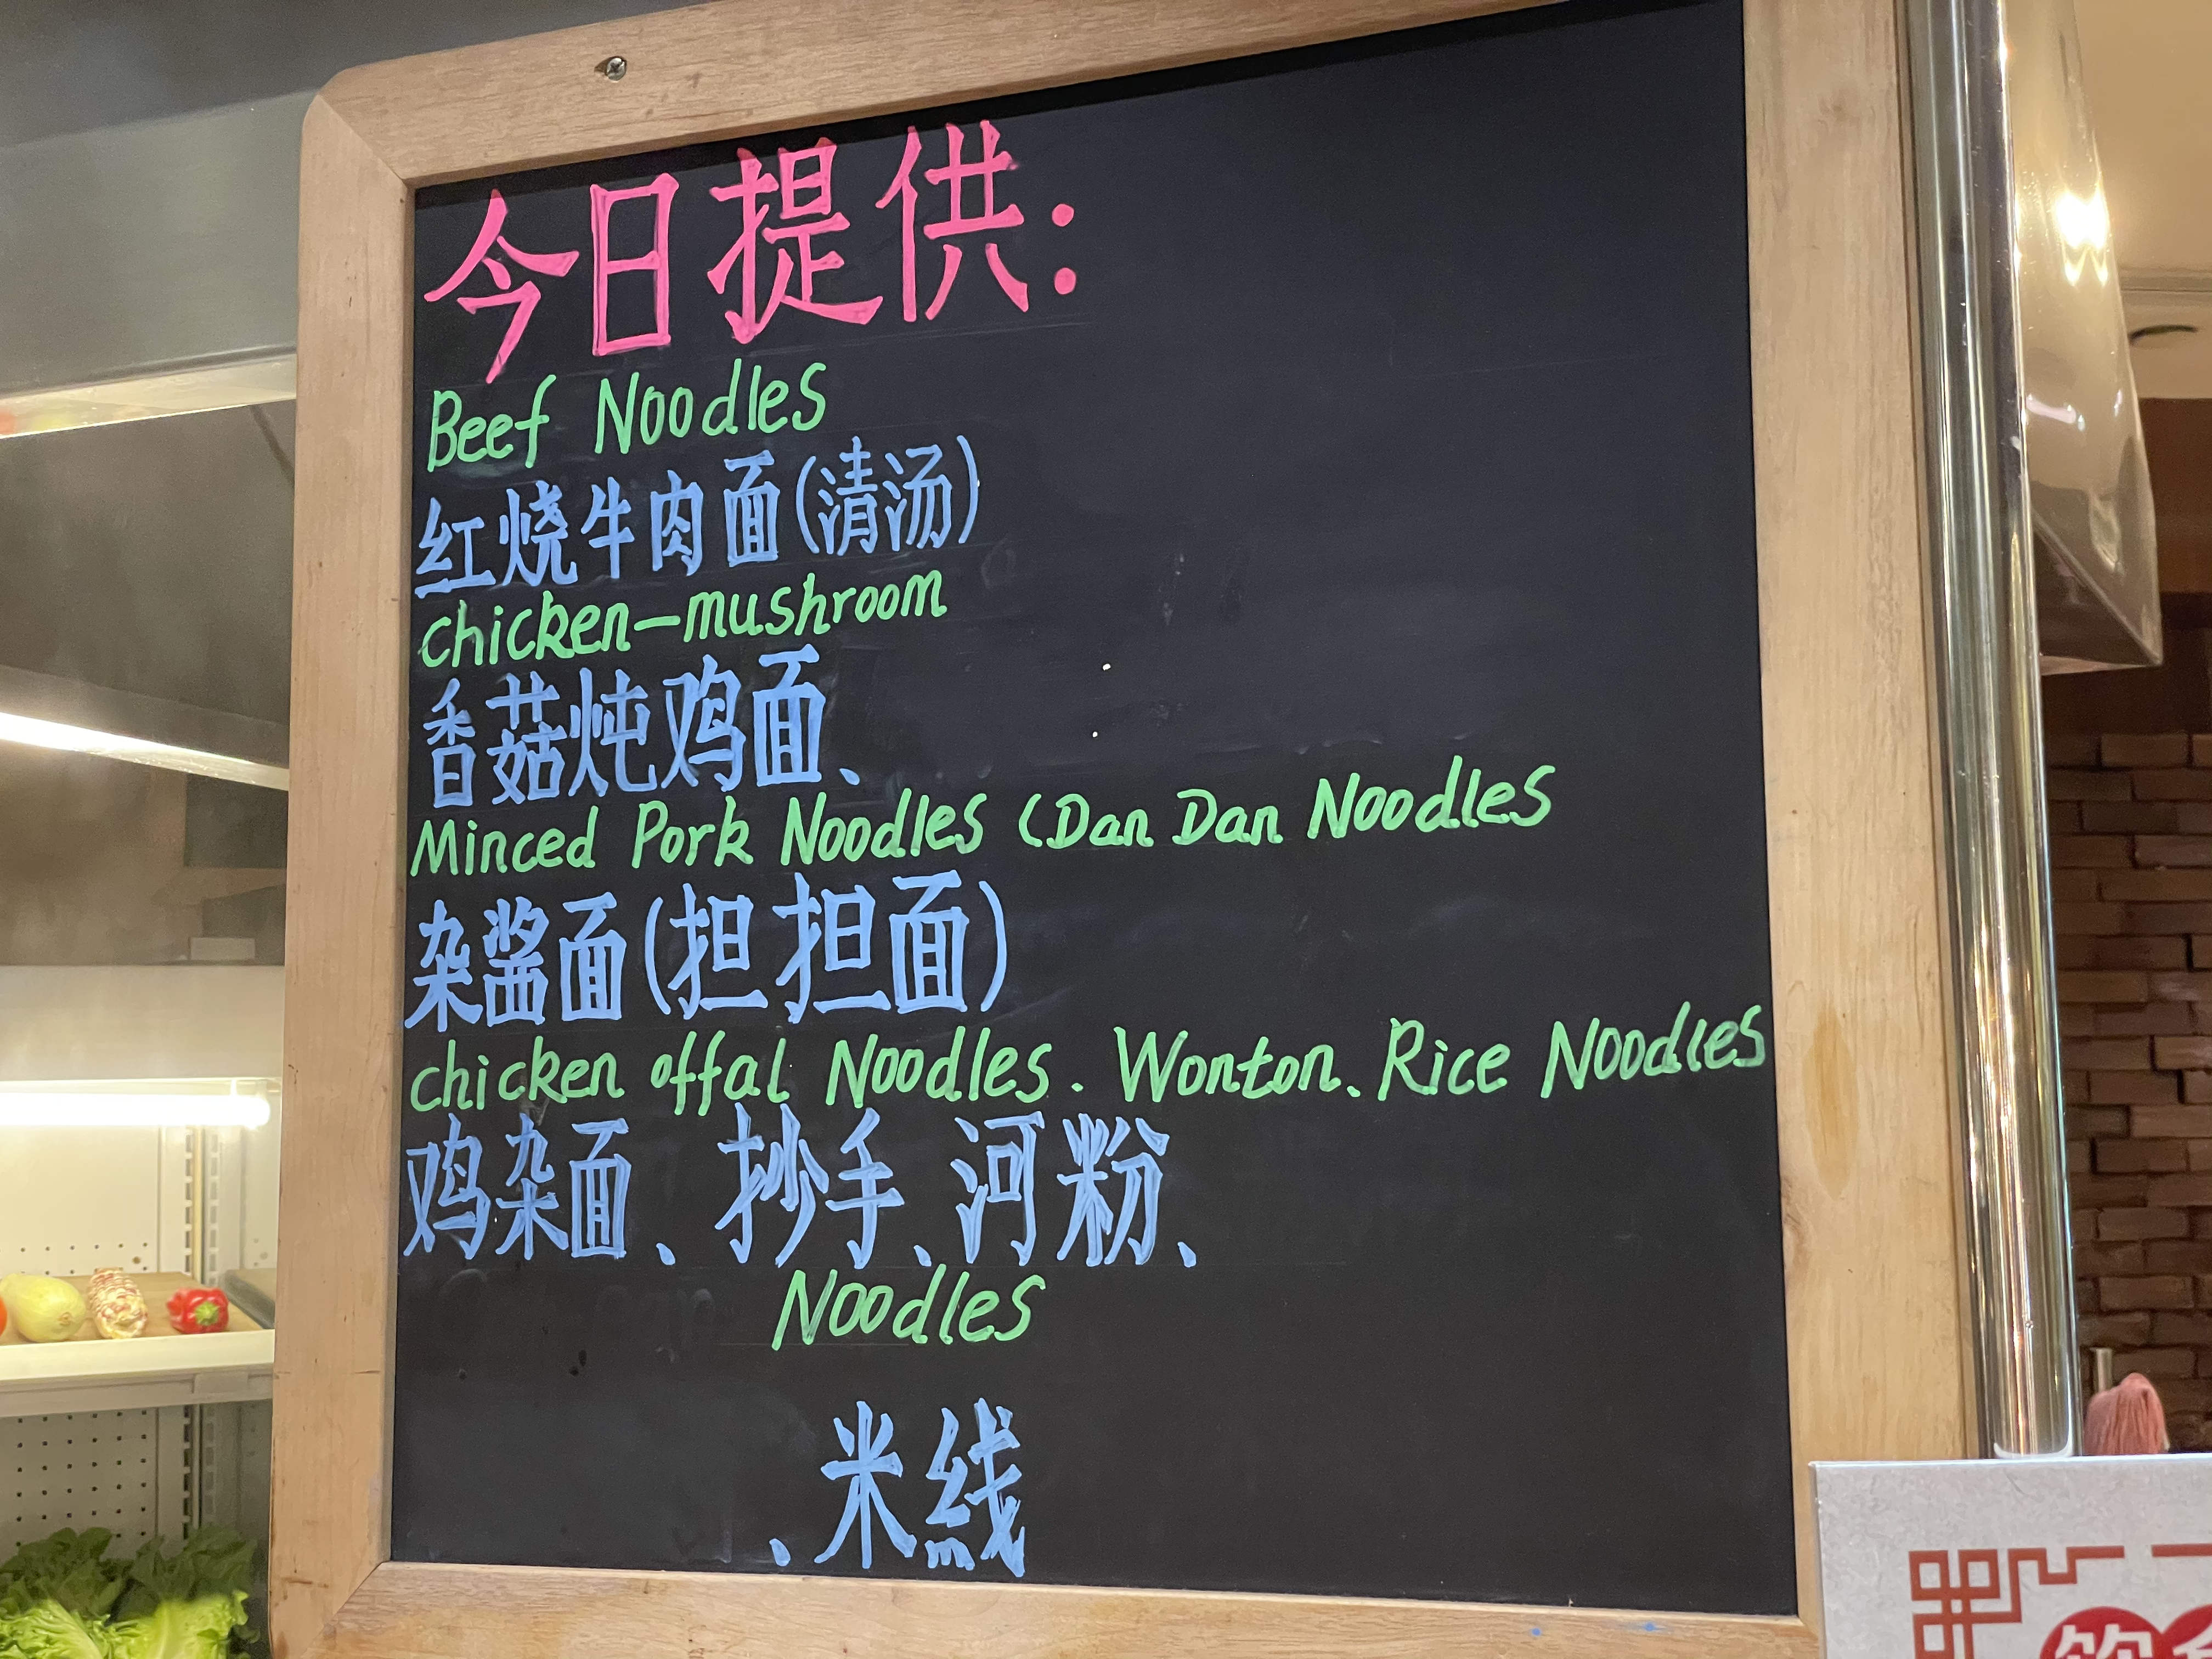 今日提供:
Beef Noodles
红烧牛肉面(清汤)
chicken-mushroom
香菇炖鸡面、
Minced Pork Noodles (Dan Dan Noodles
杂酱面(担担面)
chicken offal Noodles. Wonton、Rice Noodles
鸡杂面、抄手、河粉、
Noodles
、米线